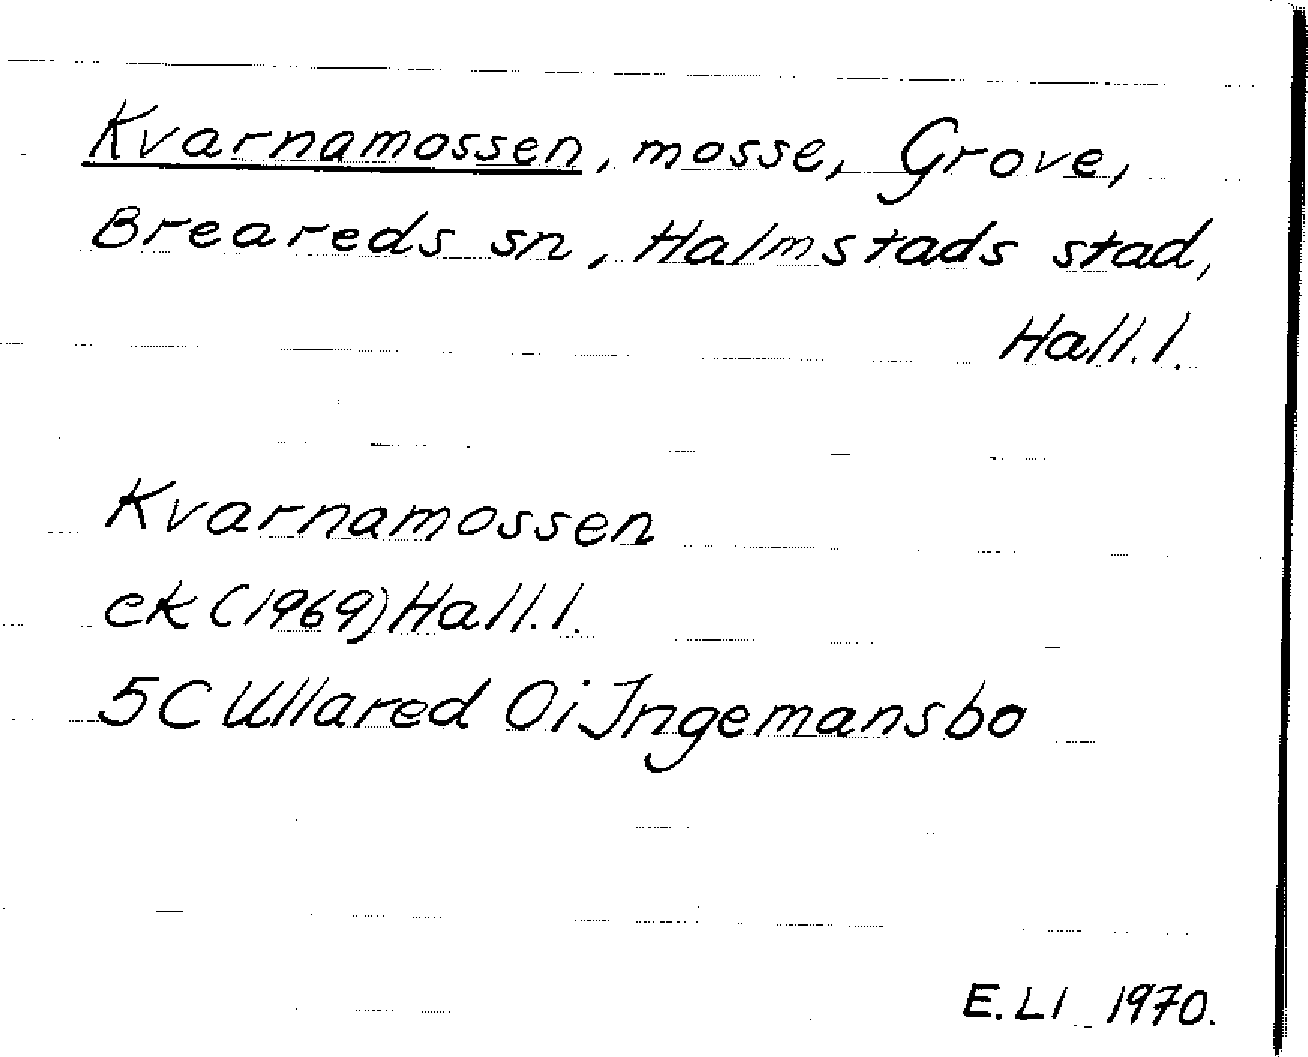 Kvarnamossen, mosse, Grove,
Breareds sn, Halmstads stad,
Hall. l.
Kvarnamossen
ek (1969) Hall. l.
5C Ullared Oi Ingemansbo
E. LI 1970.